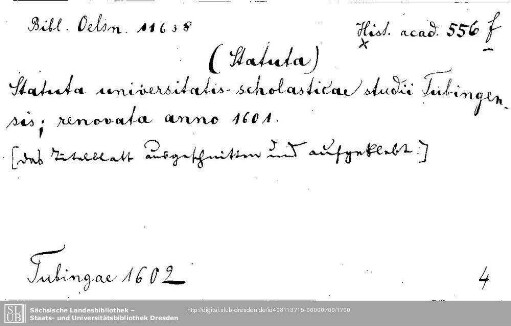 Bibl. Oelsn. 11638
Hist. acad. 556 f
x
(Statuta)
Statuta universitatis scholasticae studii Tubingen-
sis; renovata anno 1601.
[das Titelblatt ausgeschnitten und aufgeklebt.]
Tubingae 1602
4
SLUB
Sächsische Landesbibliothek –
Staats- und Universitätsbibliothek Dresden